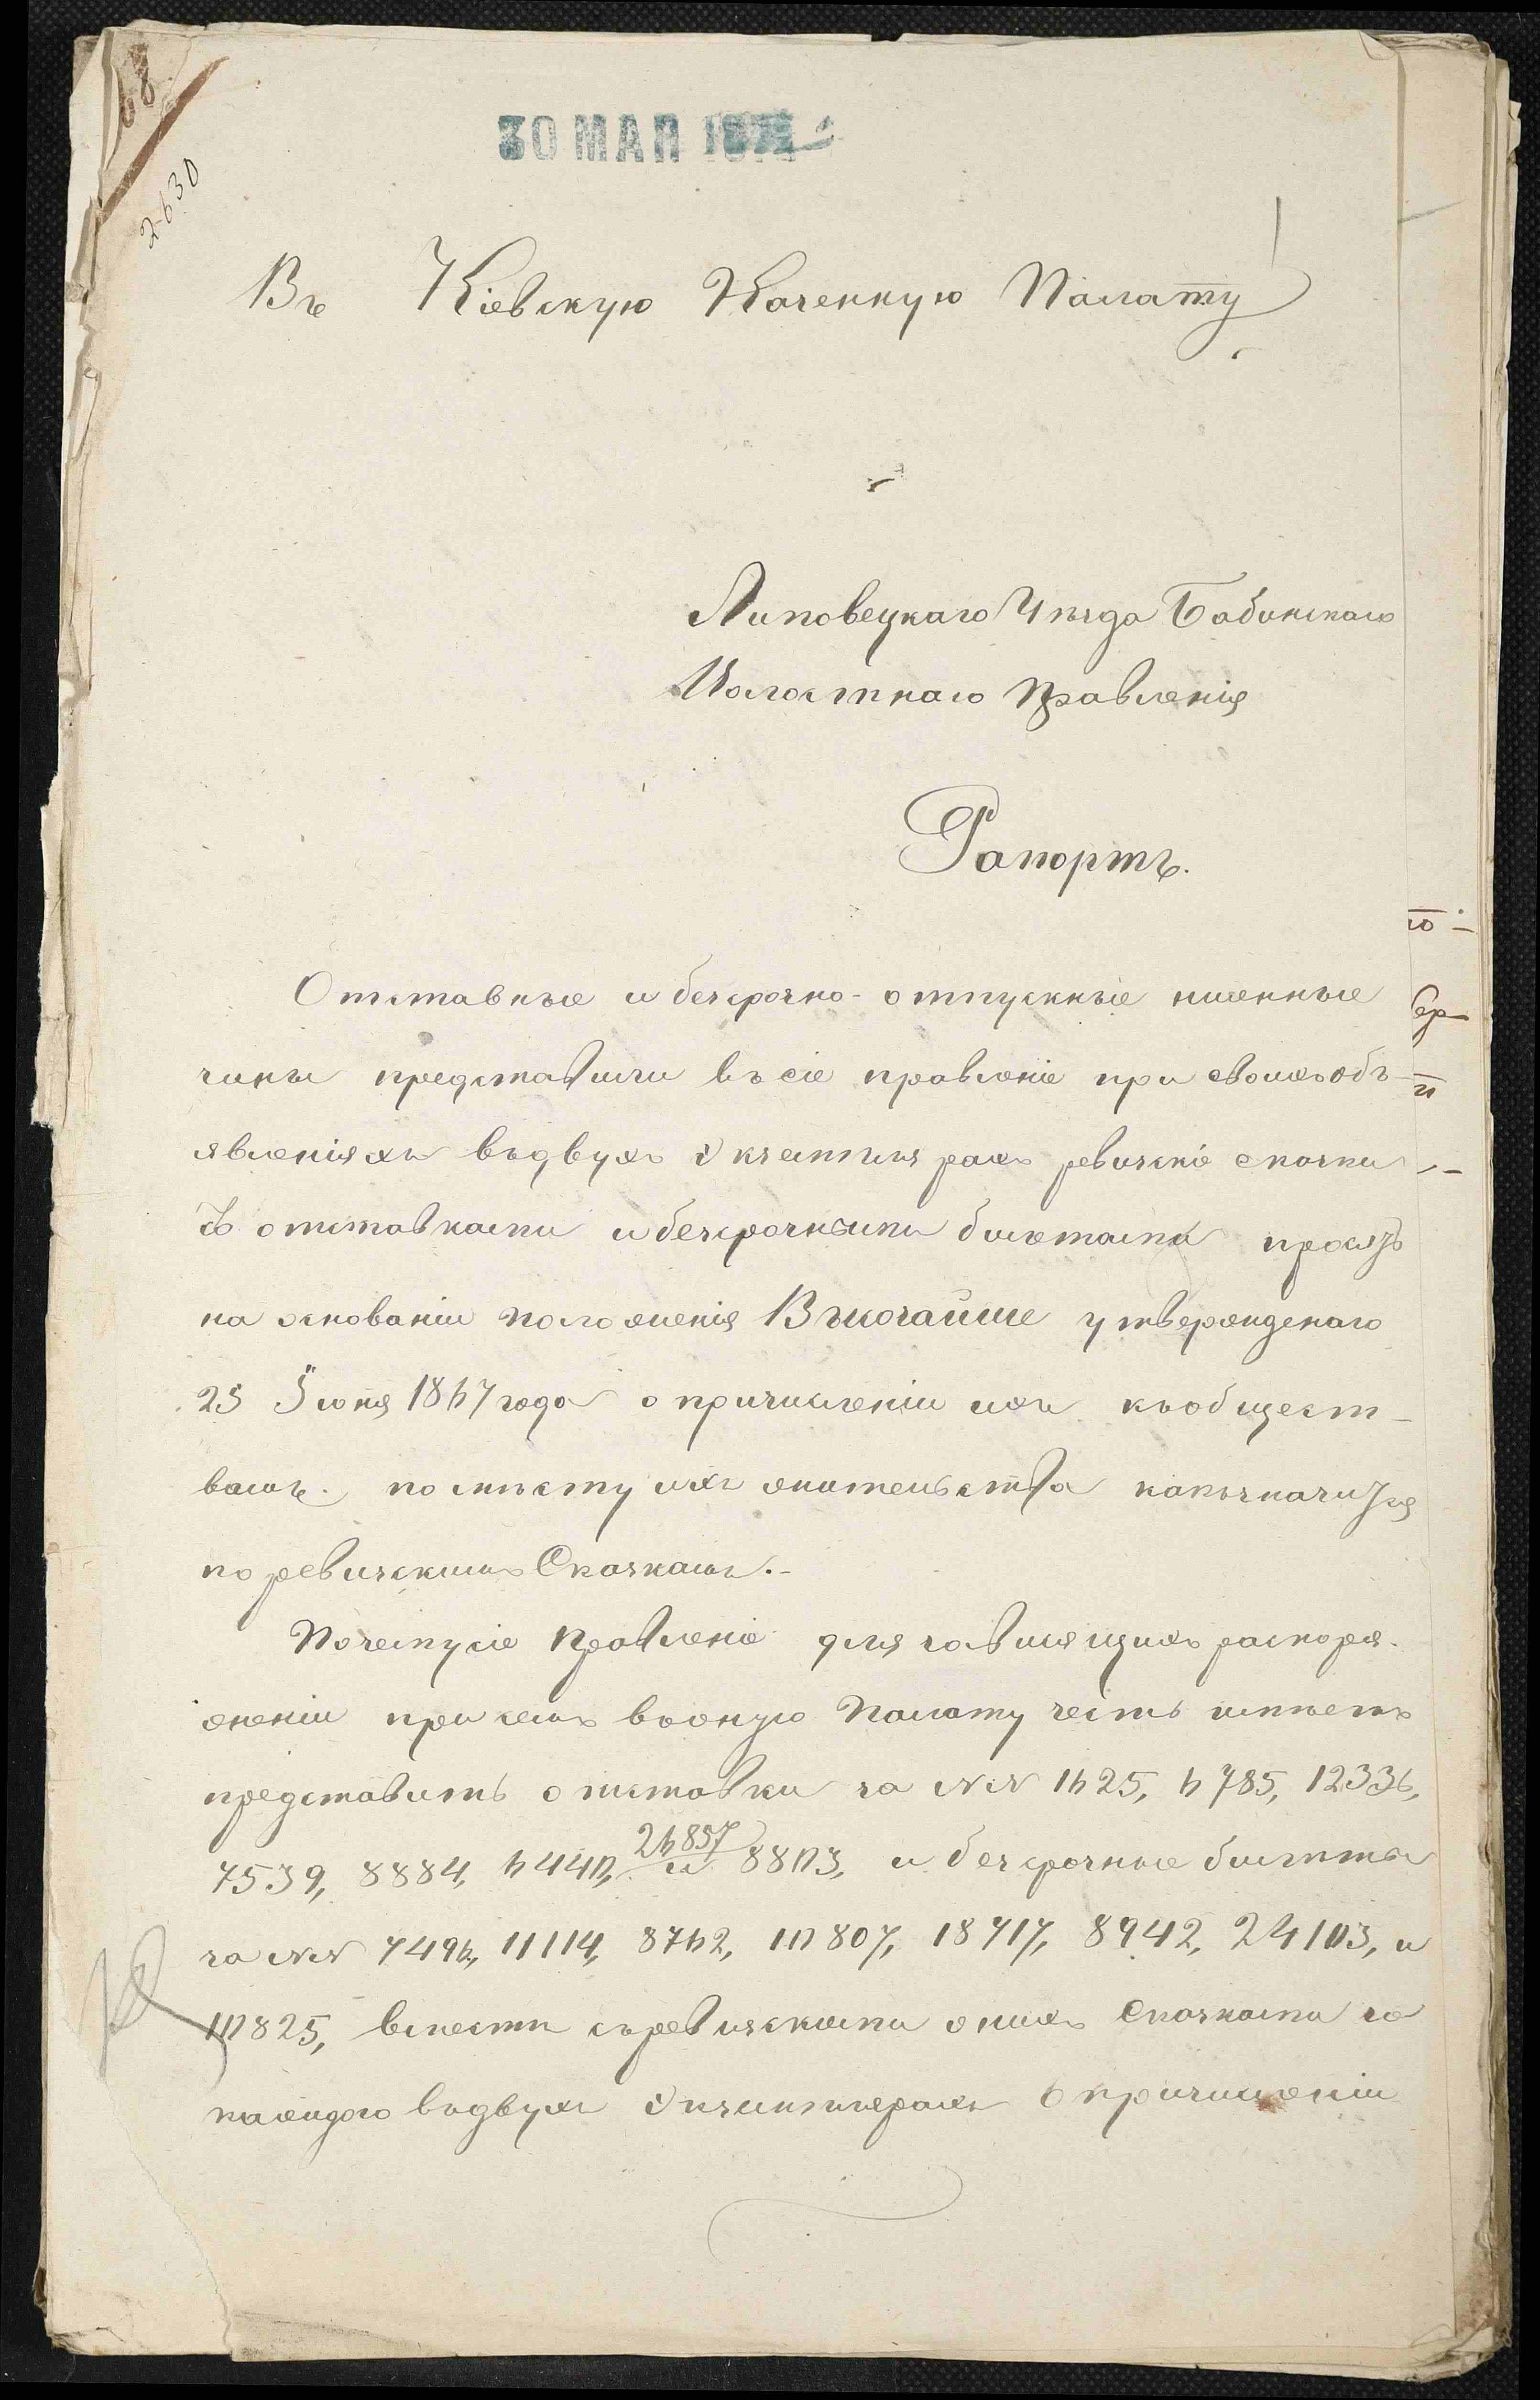 68
2630
30 МАЯ
Въ Кіевскую Казенную Палату
Липовецкаго Уѣзда Бабинскаго
Волостнаго Правленія
Рапортъ.
Отставные и безсрочно-отпускные нижные
чины представили въ сіе правленіе при своихъ объ-
явленіяхъ въ двухъ экземплярахъ ревизскіе сказки
съ отставками и безсрочными билетами просятъ
на основаніи положенія Высочайше утвержденаго
25 Іюня 1867 года о причисленіи ихъ къ общест-
вамъ. по мѣсту ихъ жительства какъ значится
по ревизскимъ Сказкамъ.-
Почему сіе Правленіе для зависящихъ распоря-
женіи при семъ въ оную Палату честь имѣетъ
представить отставки за NN 1625, 6785, 12336,
26857
7539, 8884, 6440, и 8803, и безсрочные билеты
за NN 7496, 11114, 8762, 10807, 18717, 8942, 24103, и
10825, вмести съ ревизскими онихъ Сказками за
каждого въ двухъ экземплерахъ о причисленіи